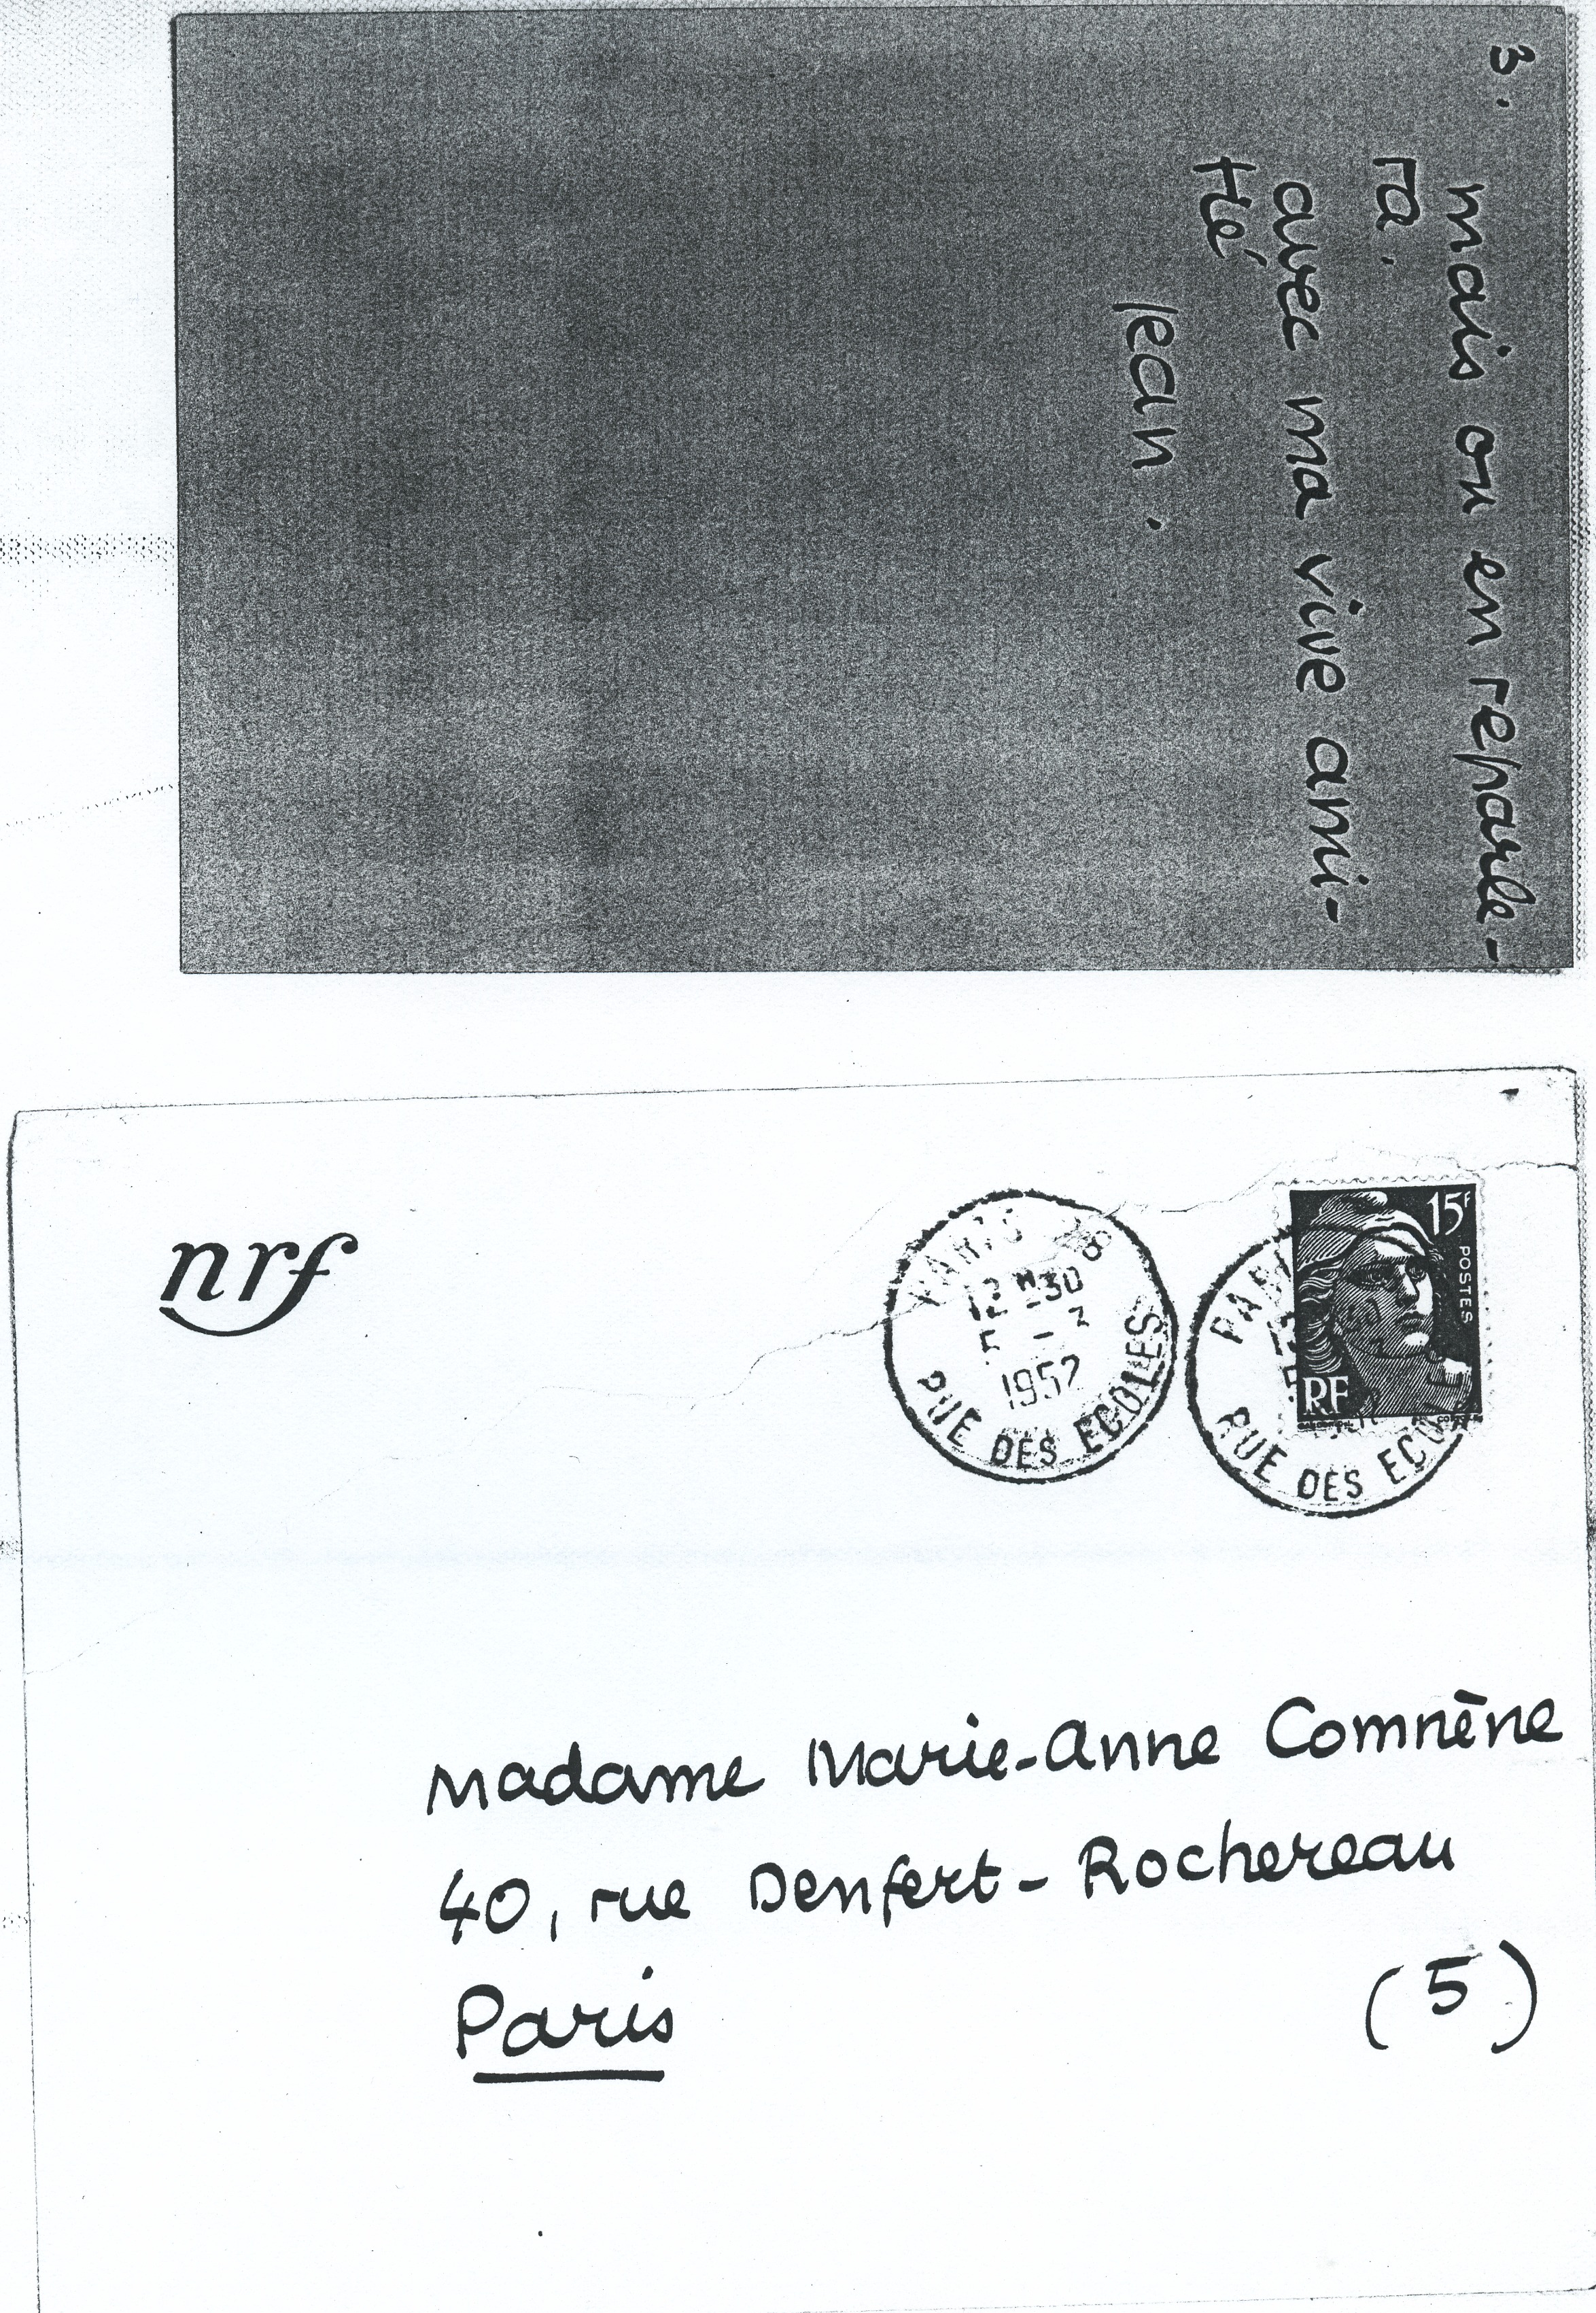 3.
mais on en reparle-
ra.
avec ma vive ami-
tié
Jean.
nrf
PARIS
12 H 30
5 - 3
1952
RUE DES ECOLES
15F
POSTES
RF
RUE DES ECOLES
Madame Marie-Anne Comnène
40, rue Denfert-Rochereau
Paris
(5)